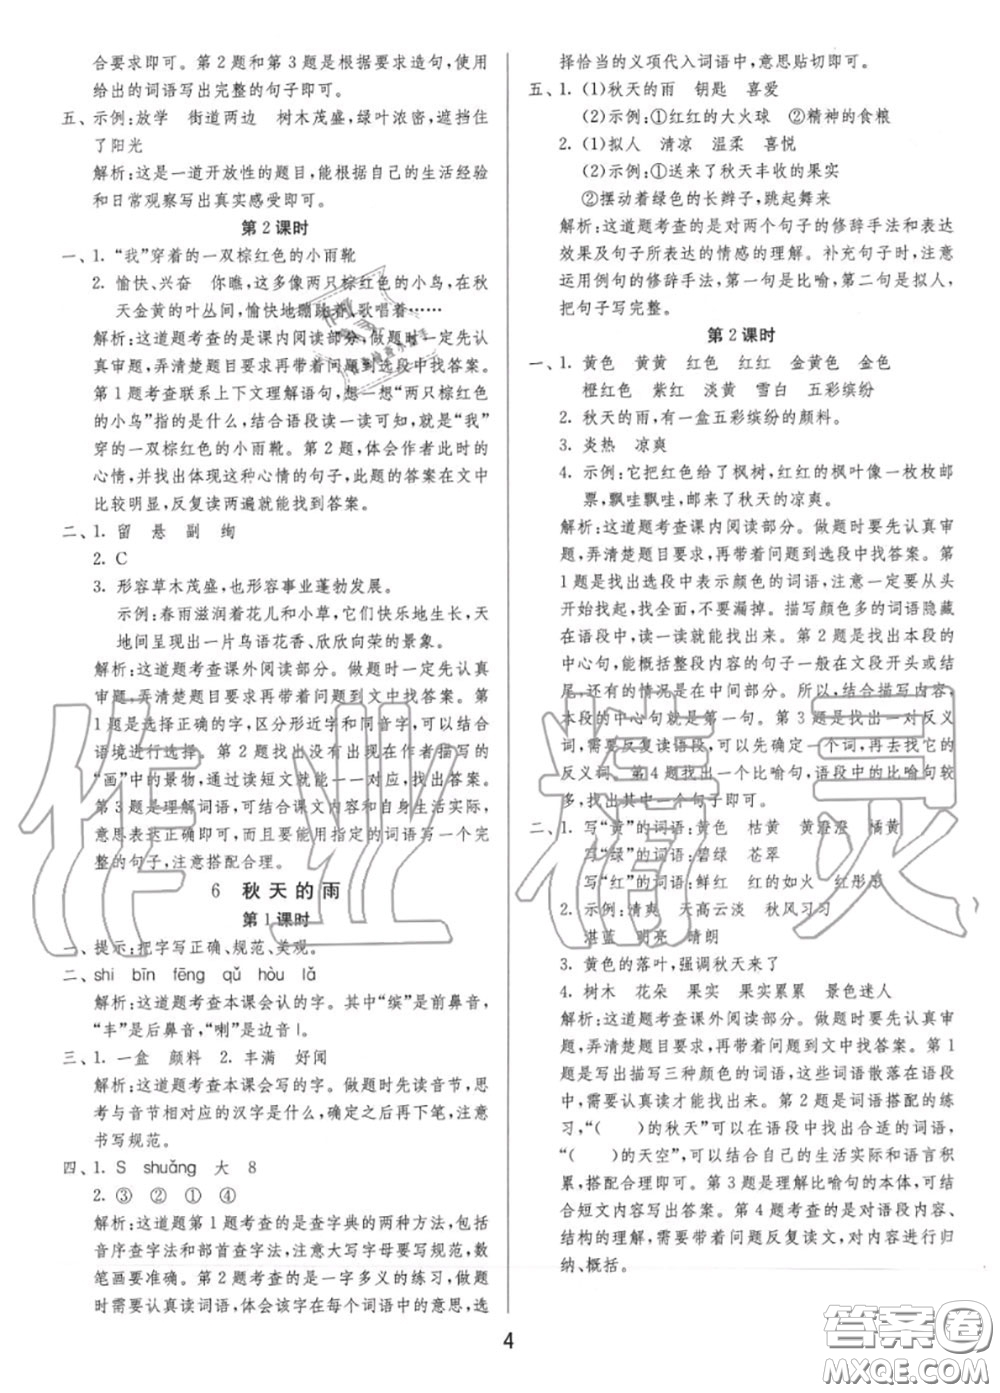 合要求即可。第2题和第3题是根据要求造句，使用
给出的词语写出完整的句子即可。
五、示例：放学　街道两边　树木茂盛，绿叶浓密，遮挡住
了阳光
解析：这是一道开放性的题目，根据自己的生活经验
和日常观察写出真实感受即可。
第2课时
一、1. “我”穿着的一双棕红色的小雨靴
2. 愉快、兴奋　你瞧，这多像两只棕红色的小鸟，在秋
天金黄的叶丛间，愉快地蹦跳着、歌唱着……
解析：这道题考查的是课内阅读部分。做题时一定先认
真审题，弄清楚题目要求再带着问题到选段中找答案。
第1题考查联系上下文理解语句，想一想“两只棕红色
的小鸟”指的是什么，结合语段读一读可知，就是“我”
穿的一双棕红色的小雨靴。第2题，体会作者此时的
心情，并找出能体现这种心情的句子，此题的答案在文中
比较明显，反复读两遍就能找到答案。
二、1. 留　悬　副　绚
2. C
3. 形容草木茂盛，也形容事业蓬勃发展。
示例：春雨滋润着花儿和小草，它们快乐地生长，天
地间呈现出一片鸟语花香、欣欣向荣的景象。
解析：这道题考查课外阅读部分。做题时一定先认真
审题，弄清楚题目要求再带着问题到文中找答案。第
1题是选择正确的字，区分形近字和同音字，可以结合
语境进行选择。第2题找出没有出现在作者描写的
“画”中的景物，通过读短文就能一一对应，找出答案。
第3题是理解词语，可结合课文内容和自身生活实际，
意思表达正确即可，而且要能用指定的词语写一个完
整的句子，注意搭配合理。
6　秋天的雨
第1课时
一、提示：把字写正确、规范、美观。
二、shi　bīn　fēng　qǔ　hòu　lǎ
解析：这道题考查本课会认的字。其中“缤”是前鼻音，
“丰”是后鼻音，“喇”是边音l。
三、1. 一盒　颜料　2. 丰满　好闻
解析：这道题考查本课会写的字。做题时先读音节，思
考与音节相对应的汉字是什么，确定之后再下笔，注意
书写规范。
四、1. S　shuǎng　大　8
2. ③　②　①　④
解析：这道题第1题考查的是查字典的两种方法，包括
音序查字法和部首查字法，注意大写字母要写规范，数
笔画要准确。第2题考查的是一字多义的练习，做题
时需要认真读词语，体会该字在每个词语中的意思，选
择恰当的义项代入词语中，意思贴切即可。
五、1. (1)秋天的雨　钥匙　喜爱
(2)示例：①红红的大火球　②精神的食粮
2. (1)拟人　清凉　温柔　喜悦
(2)示例：①送来了秋天丰收的果实
②摆动着绿色的长辫子，跳起舞来
解析：这道题考查的是对两个句子的修辞手法和表达
效果及句子所表达的情感的理解。补充句子时，注意
运用例句的修辞手法，第一句是比喻，第二句是拟人，
把句子写完整。
第2课时
一、1. 黄色　黄黄　红色　红红　金黄色　金色
橙红色　紫红　淡黄　雪白　五彩缤纷
2. 秋天的雨，有一盒五彩缤纷的颜料。
3. 炎热　凉爽
4. 示例：它把红色给了枫树，红红的枫叶像一枚枚邮
票，飘哇飘哇，邮来了秋天的凉爽。
解析：这道题考查课内阅读部分。做题时要先认真审
题，弄清楚题目要求，再带着问题到选段中找答案。第
1题是找出选段中表示颜色的词语，注意一定要从头
开始找起，找全面，不要漏掉。描写颜色多的词语隐藏
在语段中，读一读就能找出来。第2题是找出本段的
中心句，能概括整段内容的句子一般在文段开头或结
尾，还有的情况是在中间部分。所以，结合描写内容，
本段的中心句就是第一句。第3题是找出一对反义
词，需要反复读语段，可以先确定一个词，再去找它的
反义词。第4题找出一个比喻句，语段中的比喻句较
多，找出其中一个句子即可。
二、1. 写“黄”的词语：黄色　枯黄　黄澄澄　橘黄
写“绿”的词语：碧绿　苍翠
写“红”的词语：鲜红　红的如火　红彤彤
2. 示例：清爽　天高云淡　秋风习习
湛蓝　明亮　晴朗
3. 黄色的落叶，强调秋天来了
4. 树木　花朵　果实　果实累累　景色迷人
解析：这道题考查课外阅读部分。做题时要先认真审
题，弄清楚题目要求，再带着问题到文中找答案。第1
题是写出描写三种颜色的词语，这些词语散落在语段
中，需要认真读才能找出来。第2题是词语搭配的练
习，“（　　）的秋天”可以在语段中找出合适的词语，
“（　　）的天空”可以结合自己的生活实际和语言积
累，搭配合理即可。第3题是理解比喻句的本体，可结
合短文内容写出答案。第4题考查的是对语段内容、
结构的理解，需要带着问题反复读文，对内容进行归
纳、概括。
4
作业精灵
答案圈
MXQE.COM